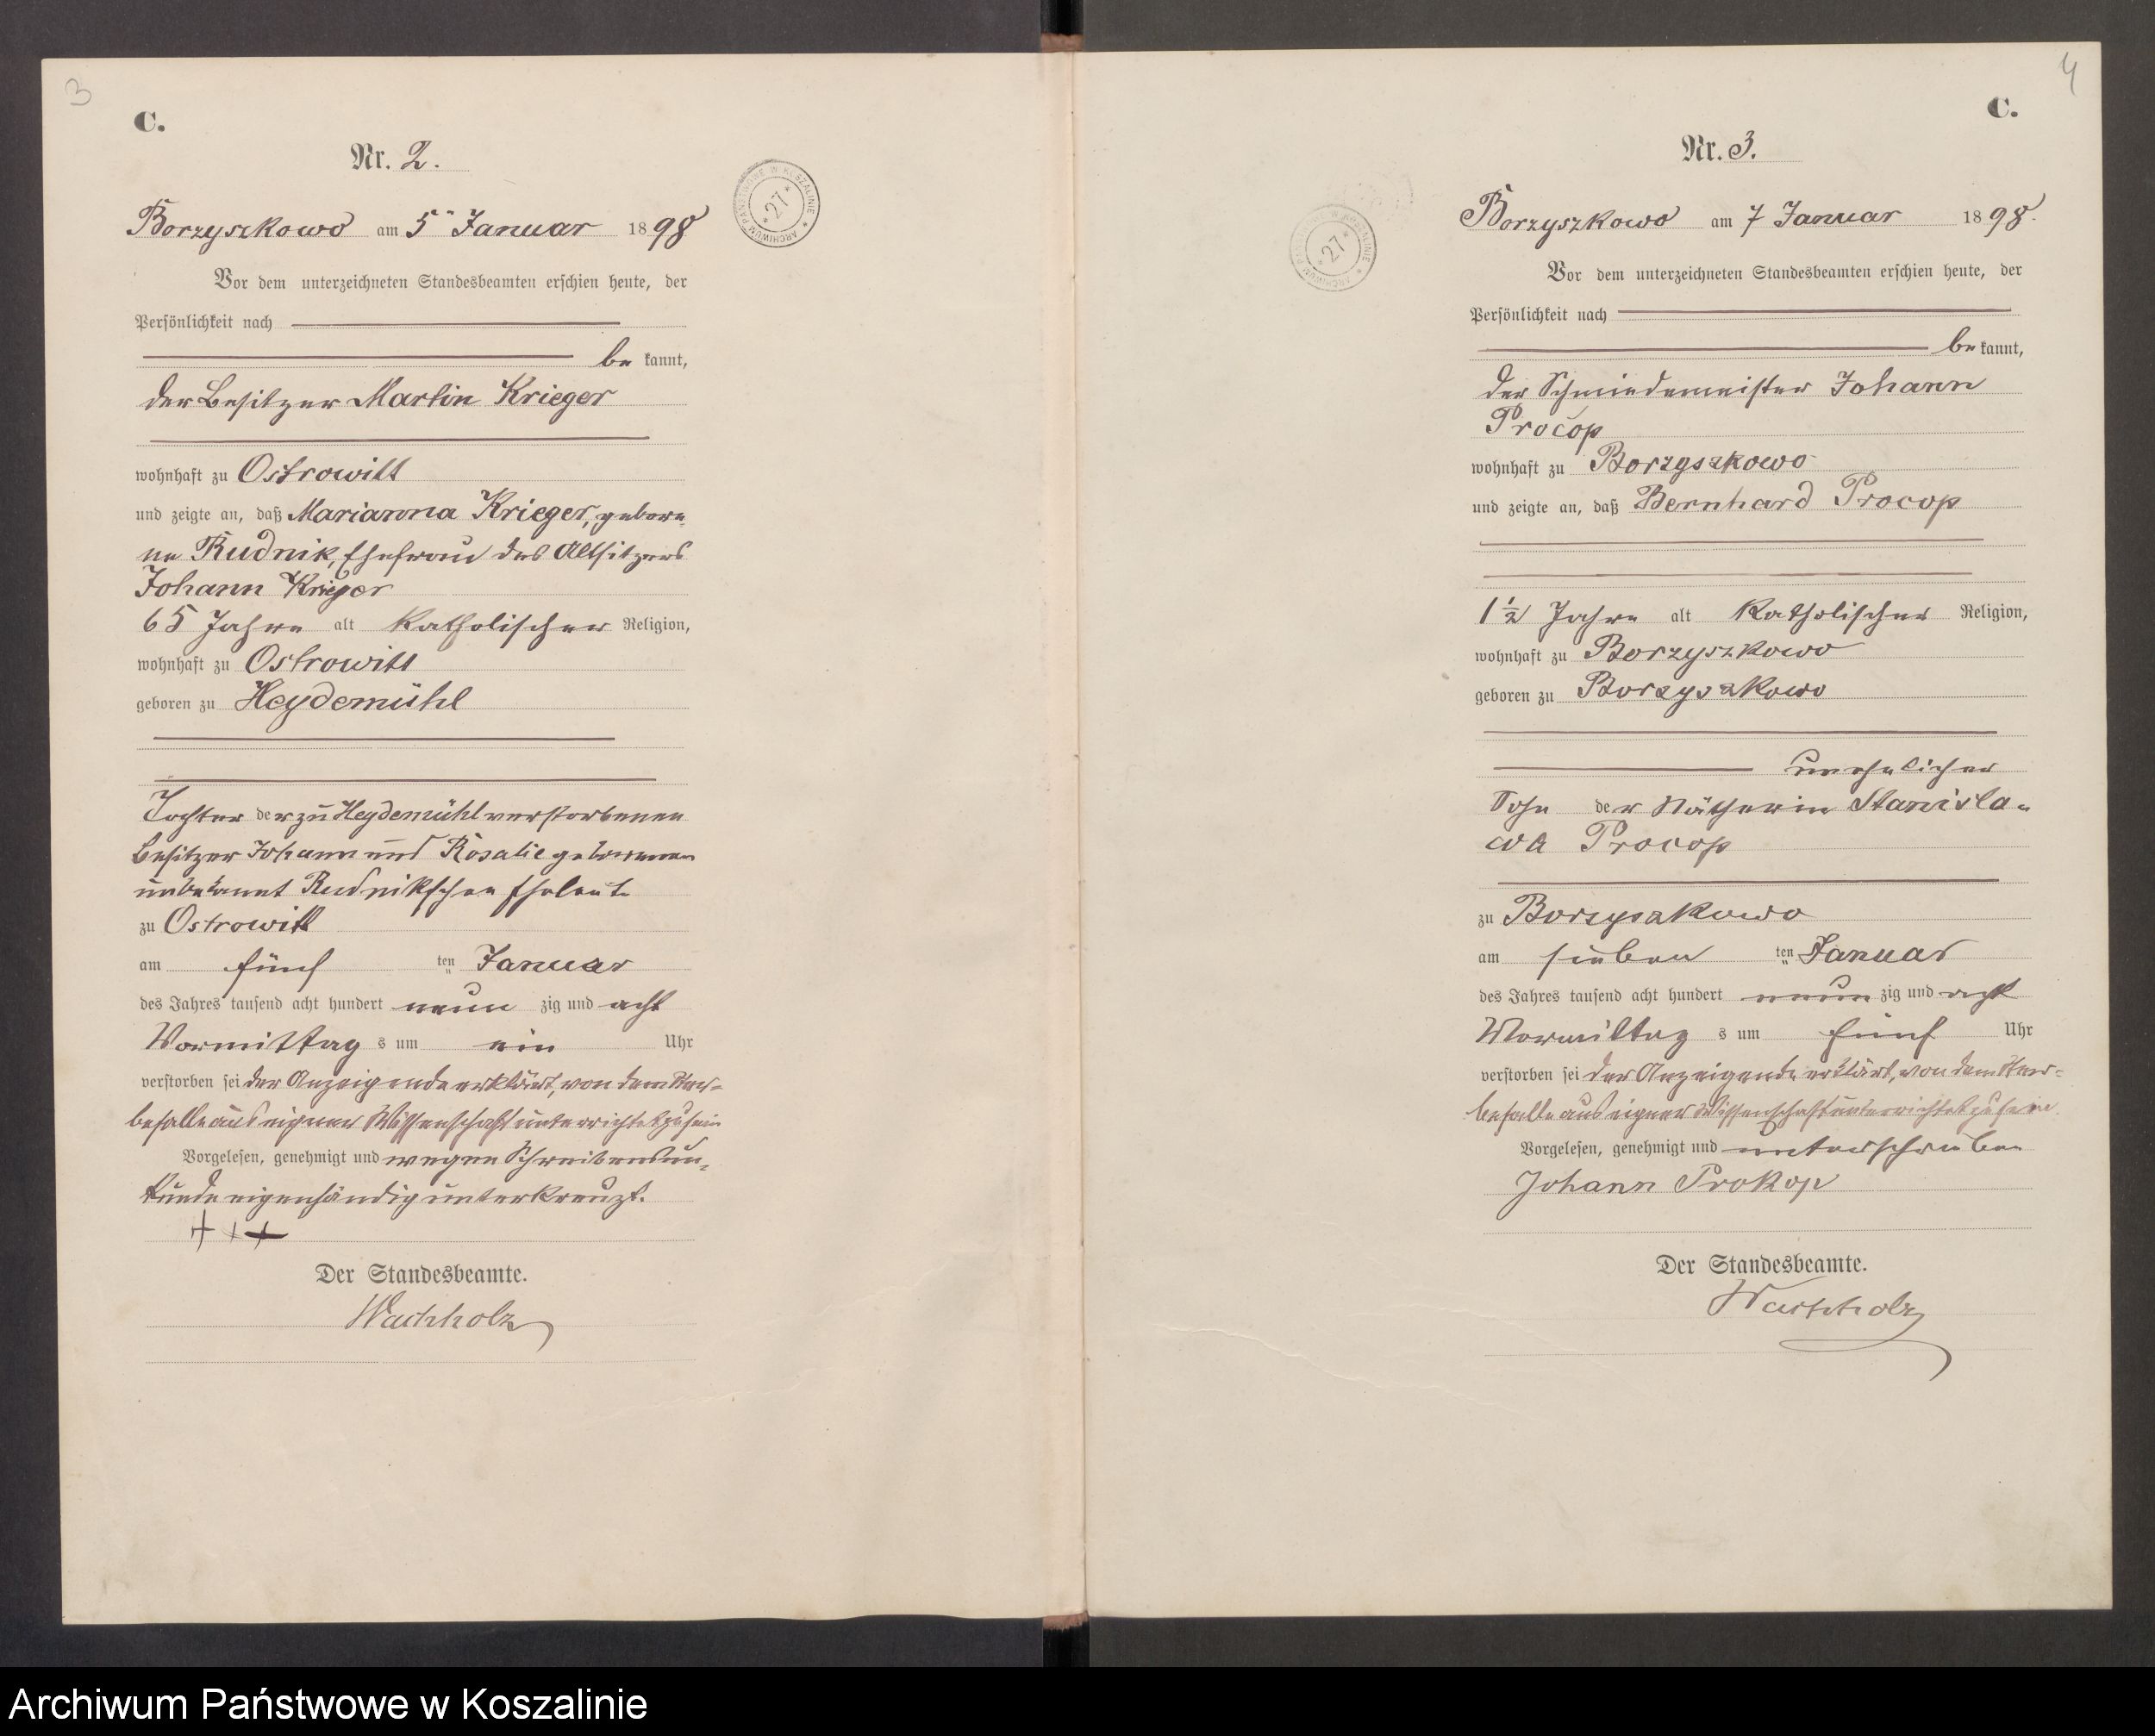 3
C.
Nr. 2.
ARCHIWUM PAŃSTWOWE W KOSZALINIE
* 27 *
Borzyszkowo am 5ten Januar 1898
Vor dem unterzeichneten Standesbeamten erschien heute, der
Persönlichkeit nach
be kannt,
der Besitzer Martin Krieger
wohnhaft zu Ostrowitt
und zeigte an, daß Marianna Krieger, gebore-
ne Rudnik, Ehefrau des Altsitzers
Johann Krieger
65 Jahre alt katholischer Religion,
wohnhaft zu Ostrowitt
geboren zu Heydemühl
Tochter der zu Heydemühl verstorbenen
Besitzer Johann und Rosalie geborenen
unbekannt Rudnikschen Eheleute
zu Ostrowitt
am fünf ten Januar
des Jahres tausend acht hundert neun zig und acht
Vormittag s um ein Uhr
verstorben sei der Anzeigende erklärt, von dem Ster-
befalle aus eigener Wissenschaft unterrichtet zu sein
Vorgelesen, genehmigt und wegen Schreibensun-
kunde eigenhändig unterkreuzt.
+ + +
Der Standesbeamte.
Wachholz
4
C.
Nr. 3.
ARCHIWUM PAŃSTWOWE W KOSZALINIE
* 27 *
Borzyszkowo am 7 Januar 1898.
Vor dem unterzeichneten Standesbeamten erschien heute, der
Persönlichkeit nach
be kannt,
der Schmiedemeister Johann
Procop
wohnhaft zu Borzyszkowo
und zeigte an, daß Bernhard Procop
1½ Jahre alt katholischer Religion,
wohnhaft zu Borzyszkowo
geboren zu Borzyszkowo
unehelicher
Sohn der Nätherin Stanisla-
wa Procop
zu Borzyszkowo
am sieben ten Januar
des Jahres tausend acht hundert neun zig und acht
Vormittag s um fünf Uhr
verstorben sei der Anzeigende erklärt, von dem Ster-
befalle aus eigener Wissenschaft unterrichtet zu sein.
Vorgelesen, genehmigt und unterschrieben
Johann Prokop
Der Standesbeamte.
Wachholz
Archiwum Państwowe w Koszalinie